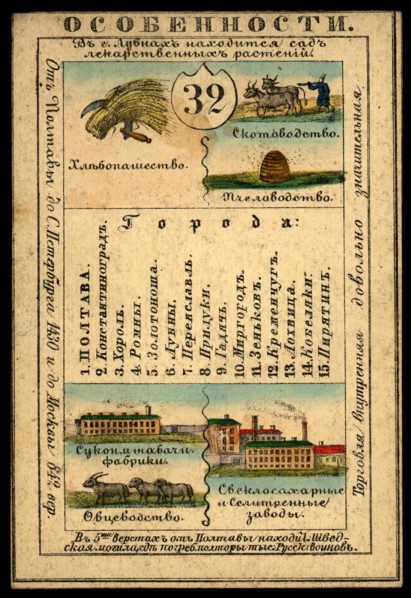 ОСОБЕННОСТИ.
Въ г. Лубнахъ находится садъ
лекарственныхъ растеній.
32
Хлѣбопашество.
Скотоводство.
Пчеловодство.
Города:
1. ПОЛТАВА.
2. Константиноградъ.
3. Хороль.
4. Ромны.
5. Золотоноша.
6. Лубны.
7. Переяславль.
8. Прилуки.
9. Гадячь.
10. Миргородъ.
11. Зеньковъ.
12. Кременчугъ.
13. Лохвица.
14. Кобеляки.
15. Пирятинъ.
Сукон. и табачн.
фабрики.
Овцеводство.
Свеклосахарные
и Селитренные
заводы.
Въ 5ти верстахъ отъ Полтавы находи. Швед-
ская могила, гдѣ погреб. полторы тыс. Русск. воиновъ.
Отъ Полтавы до С. Петербурга 1430 и до Москвы 822 вер.
Торговля внутренняя довольно значительная